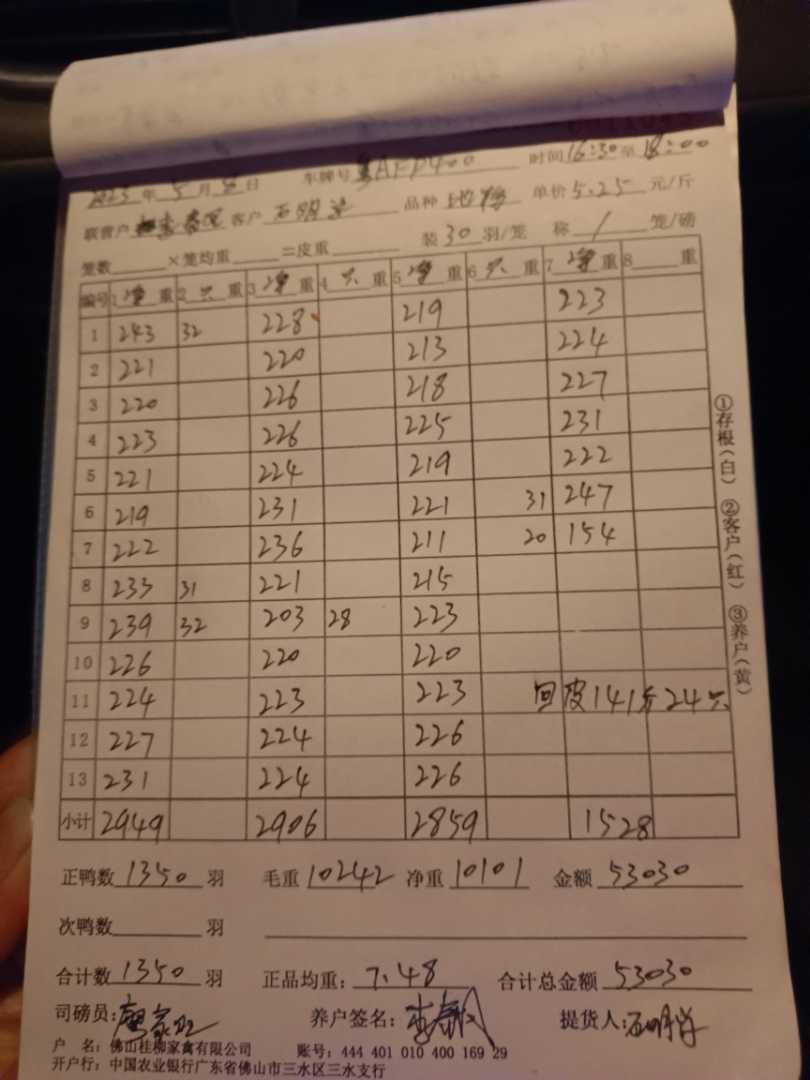 2023年5月30日 车牌号粤AFP400 时间16:30至18:00
联营户 客户石明 品种 单价5.25元/斤
笼数 ×笼均重 =皮重 装30羽/笼 称/笼/磅
编号 1净重 2只重 3净重 4只重 5净重 6只重 7净重 8重
1 243 32 228 219 223
2 221 220 213 224
3 220 226 218 227
4 223 226 225 231
5 221 224 219 222
6 219 231 221 31 247
7 222 236 211 20 154
8 233 31 221 215
9 239 32 203 28 223
10 226 220 220
11 224 223 223 回皮141斤24只
12 227 224 226
13 231 224 226
小计 2949 2906 2859 1528
正鸭数1350羽 毛重10242 净重10101 金额53030
次鸭数 羽
合计数1350羽 正品均重:7.48 合计总金额53030
司磅员: 养户签名: 提货人:
户 名:佛山桂柳家禽有限公司 账号:444 401 010 400 169 29
开户行:中国农业银行广东省佛山市三水区三水支行
①存根(白) ②客户(红) ③养户(黄)